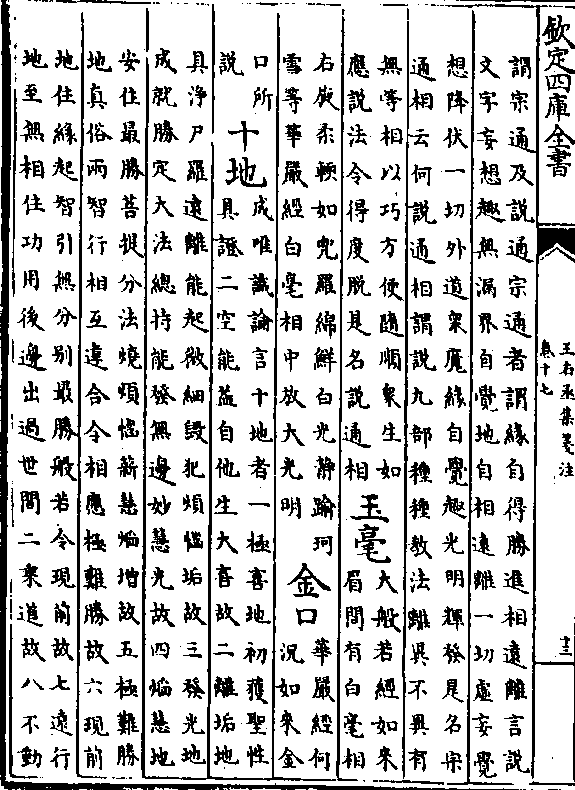 欽定四庫全書
王右丞集箋注
卷十七
十三
謂宗通及說通宗通者謂緣自得勝進相遠離言說
文字妄想趣無漏界自覺地自相遠離一切虛妄覺
想降伏一切外道衆魔緣自覺趣光明輝發是名宗
通相云何說通相謂說九部種種教法離異不異有
無等相以巧方便隨順衆生如
應說法令得度脫是名說通相
玉毫
大般若經如來
眉間有白毫相
右旋柔輭如兜羅綿鮮白光静踰珂
雪等華嚴經白毫相中放大光明
金口
華嚴經何
況如來金
口所
說
十地
成唯識論言十地者一極喜地初獲聖性
具證二空能益自他生大喜故二離垢地
具淨尸羅遠離能起微細毀犯煩惱垢故三發光地
成就勝定大法總持能發無邊妙慧光故四焰慧地
安住最勝菩提分法燒煩惱薪慧焰增故五極難勝
地真俗兩智行相互違合令相應極難勝故六現前
地住緣起智引無分别最勝般若令現前故七遠行
地至無相住功用後邊出過世間二乘道故八不動